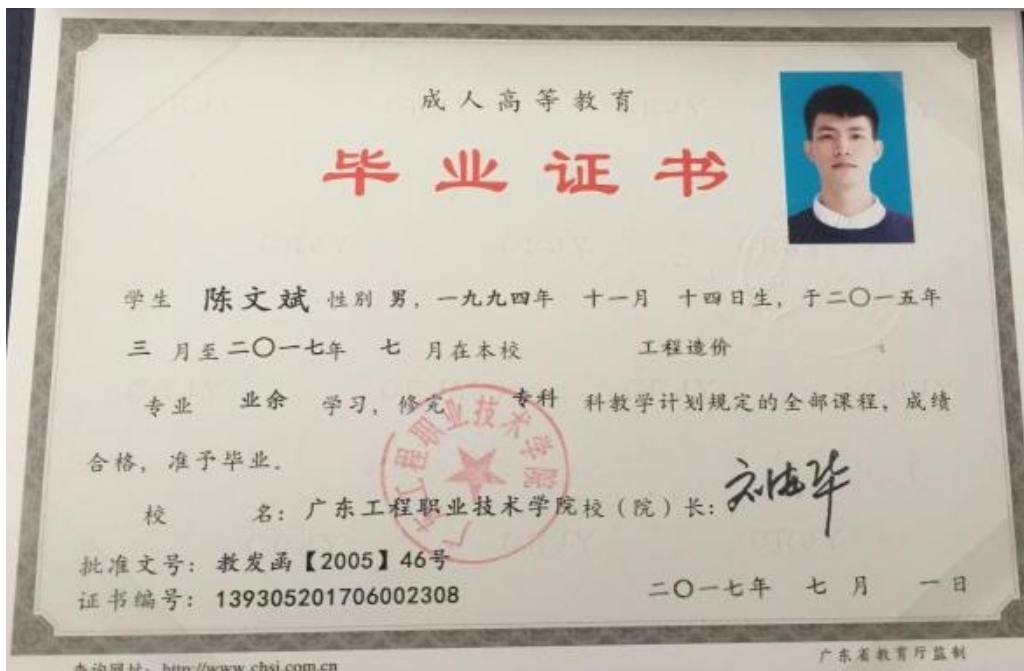 成人高等教育
毕业证书
学生 陈文斌 性别 男，一九九四年 十一月 十四日生，于二〇一五年
三 月至二〇一七年 七 月在本校 工程造价
专业 业余 学习，修完 专科 科教学计划规定的全部课程，成绩
合格，准予毕业。
校 名：广东工程职业技术学院校（院）长：
批准文号：教发函【2005】46号
证书编号：139305201706002308
二〇一七年 七 月 一日
查询网址：http://www.chsi.com.cn
广东省教育厅监制
广东工程职业技术学院